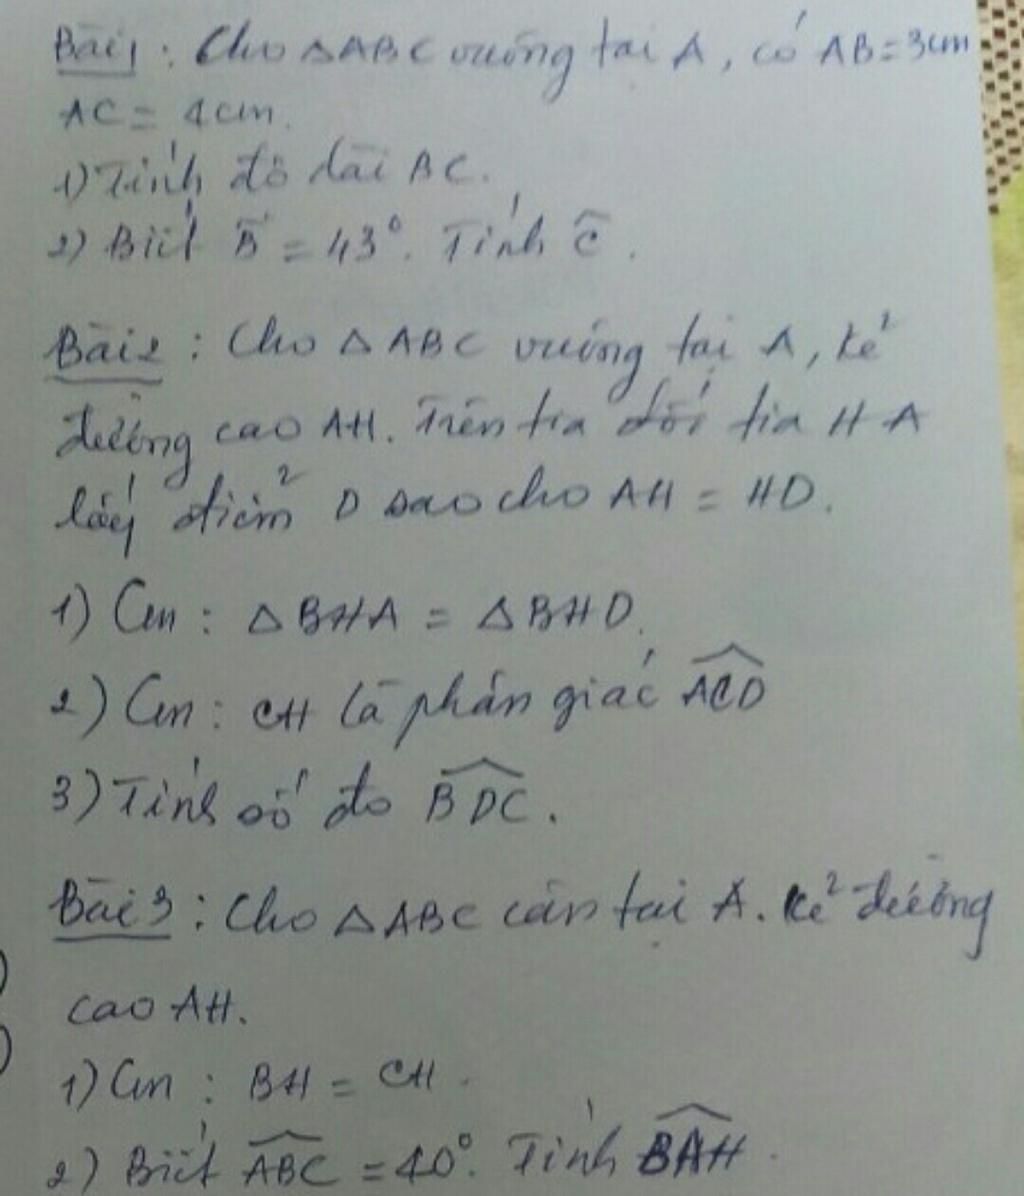 Bài 1 : Cho △ABC vuông tại A, có AB = 3cm
AC = 4cm.
1) Tính độ dài BC.
2) Biết B̂ = 43°. Tính Ĉ.
Bài 2 : Cho △ABC vuông tại A, kẻ
đường cao AH. Trên tia đối tia HA
lấy điểm D sao cho AH = HD.
1) Cm : △BHA = △BHD.
2) Cm : CH là phân giác ÂCD
3) Tính số đo BD̂C.
Bài 3 : Cho △ABC cân tại A. Kẻ đường
cao AH.
1) Cm : BH = CH.
2) Biết AB̂C = 40°. Tính BÂH.